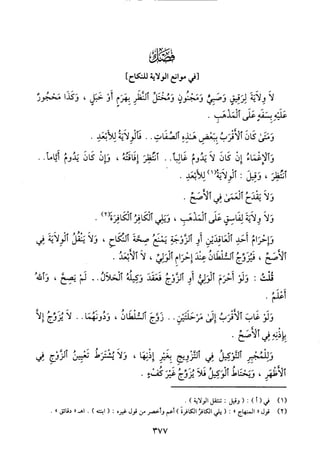 فصل
[في موانع الولاية للنكاح]
لَا وِلَايَةَ لِرَقِيقٍ وَصَبِيٍّ وَمَجْنُونٍ وَمُخْتَلِّ النَّظَرِ بِهَرَمٍ أَوْ خَبَلٍ ، وَكَذَا مَحْجُورٌ
عَلَيْهِ بِسَفَهٍ عَلَى الْمَذْهَبِ .
وَمَتَى كَانَ الْأَقْرَبُ بِبَعْضِ هَذِهِ الصِّفَاتِ .. فَالْوِلَايَةُ لِلْأَبْعَدِ .
وَالْإِغْمَاءُ إِنْ كَانَ لَا يَدُومُ غَالِباً .. انْتُظِرَ إِفَاقَتُهُ ، وَإِنْ كَانَ يَدُومُ أَيَّاماً ..
انْتُظِرَ ، وَقِيلَ : الْوِلَايَةُ(١) لِلْأَبْعَدِ .
وَلَا يَقْدَحُ الْعَمَى فِي الْأَصَحِّ .
وَلَا وِلَايَةَ لِفَاسِقٍ عَلَى الْمَذْهَبِ ، وَيَلِي الْكَافِرُ الْكَافِرَةَ(٢) .
وَإِحْرَامُ أَحَدِ الْعَاقِدَيْنِ أَوِ الزَّوْجَةِ يَمْنَعُ صِحَّةَ النِّكَاحِ ، وَلَا يَنْقُلُ الْوِلَايَةَ فِي
الْأَصَحِّ ، فَيُزَوِّجُ السُّلْطَانُ عِنْدَ إِحْرَامِ الْوَلِيِّ ، لَا الْأَبْعَدُ .
قُلْتُ : وَلَوْ أَحْرَمَ الْوَلِيُّ أَوِ الزَّوْجُ فَعَقَدَ وَكِيلُهُ الْحَلَالُ .. لَمْ يَصِحَّ ، وَاللهُ
أَعْلَمُ .
وَلَوْ غَابَ الْأَقْرَبُ إِلَى مَرْحَلَتَيْنِ .. زَوَّجَ السُّلْطَانُ ، وَدُونَهُمَا .. لَا يُزَوِّجُ إِلَّا
بِإِذْنِهِ فِي الْأَصَحِّ .
وَلِلْمُجْبِرِ التَّوْكِيلُ فِي التَّزْوِيجِ بِغَيْرِ إِذْنِهَا ، وَلَا يُشْتَرَطُ تَعْيِينُ الزَّوْجِ فِي
الْأَظْهَرِ ، وَيَحْتَاطُ الْوَكِيلُ فَلَا يُزَوِّجُ غَيْرَ كُفْءٍ .
(١) في ( أ ) : ( وقيل : تنتقل الولاية ) .
(٢) قول « المنهاج » : ( يلي الكافر الكافرة ) أعم وأخصر من قول غيره : ( ابنته ) . اهـ « دقائق » .
٣٧٧